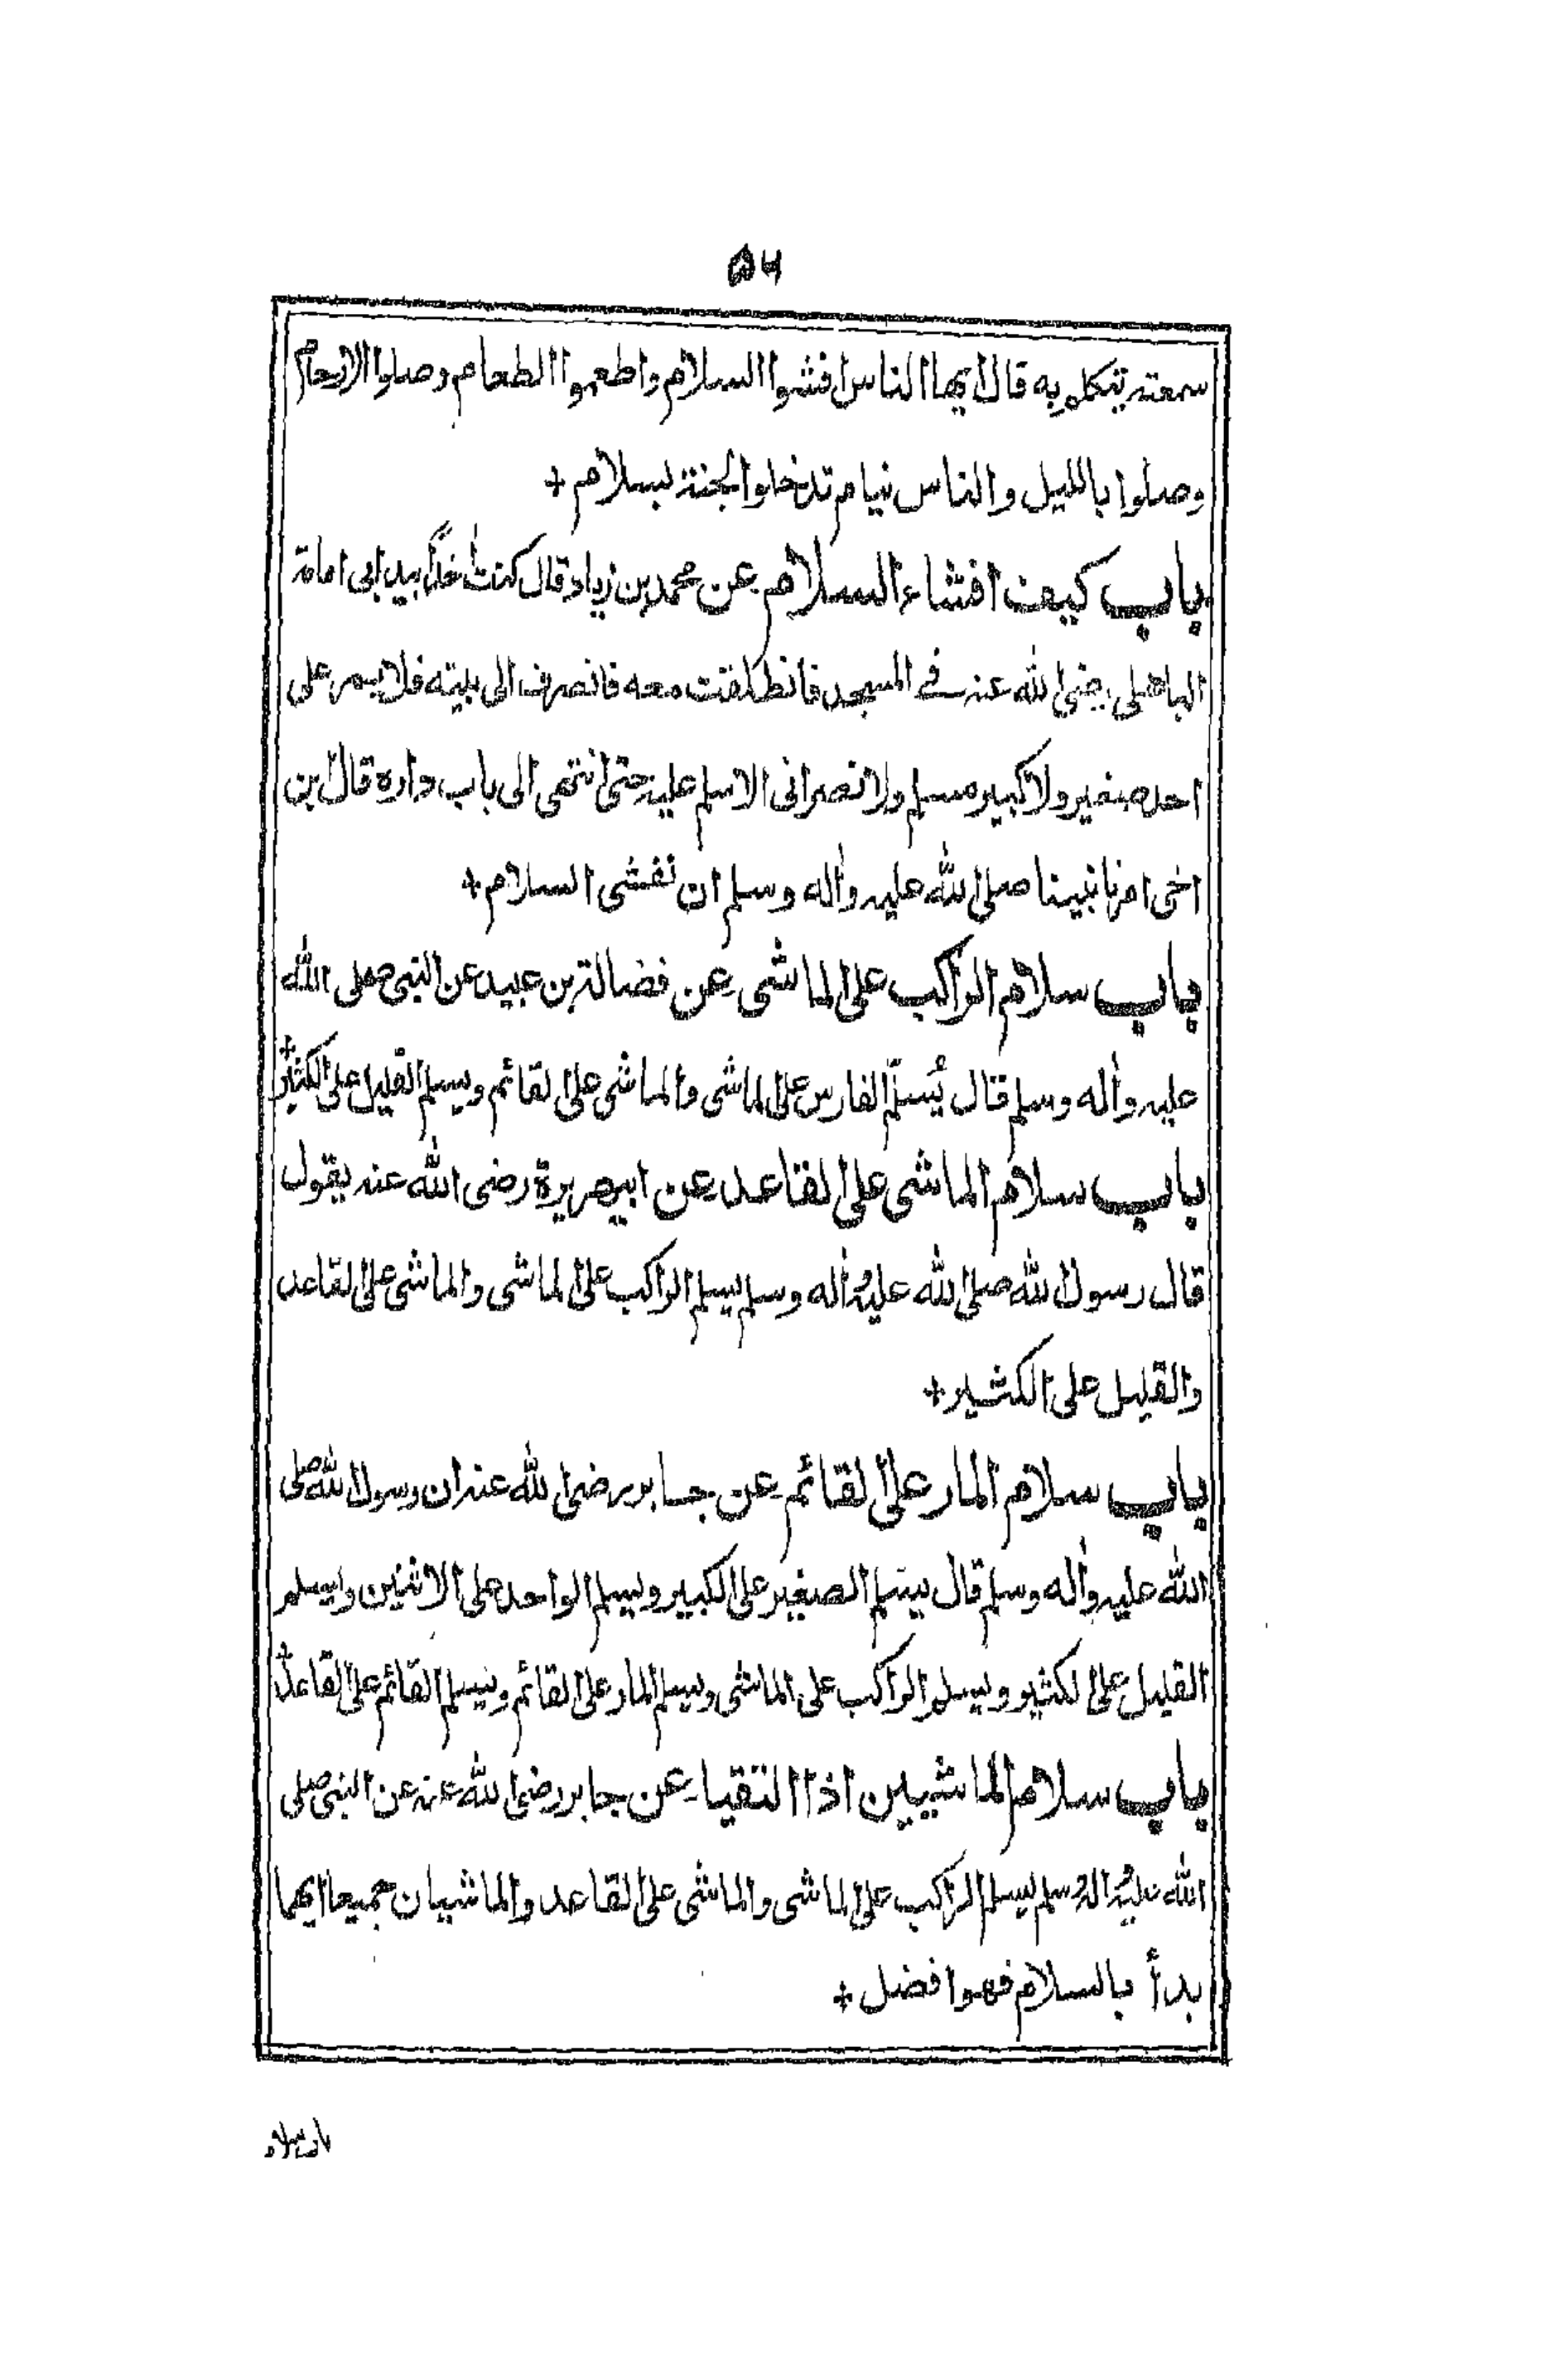 ۵۶
سمعته يتكلم به قال ايها الناس افشوا السلام واطعموا الطعام وصلوا الارحام
وصلوا بالليل والناس نيام تدخلوا الجنة بسلام +
باب كيف افشاء السلام عن محمد بن زياد قال كنت اخذا بيد ابى امامة
الباهلى رضى الله عنه فے المسجد فانطلقت معه فانصرف الى بيته فلا يمر على
احد صغير ولا كبير مسلم ولا نصرانى الا سلم عليه حتى انتهى الى باب داره قال بن
اخى امرنا نبينا صلى الله عليه واٰله وسلم ان نفشى السلام +
باب سلام الراكب على الماشى عن فضالة بن عبيد عن النبى صلى الله
عليه واٰله وسلم قال يُسلّم الفارس على الماشى والماشى على القائم ويسلم القليل على الكثير +
باب سلام الماشى على القاعد عن ابيهريرة رضى الله عنه يقول
قال رسول الله صلى الله عليه واٰله وسلم يسلم الراكب على الماشى والماشى على القاعد
والقليل على الكثير +
باب سلام المار على القائم عن جابر رضى الله عنه ان رسول الله صلى
الله عليه واٰله وسلم قال يسلم الصغير على الكبير ويسلم الواحد على الاثنين ويسلم
القليل على الكثير ويسلم الراكب على الماشى ويسلم المار على القائم ويسلم القائم على القاعد +
باب سلام الماشيين اذا التقيا عن جابر رضى الله عنه عن النبى صلى
الله عليه واله وسلم يسلم الراكب على الماشى والماشى على القاعد والماشيان جميعا ايهما
بدأ بالسلام فهو افضل +
باب سلام